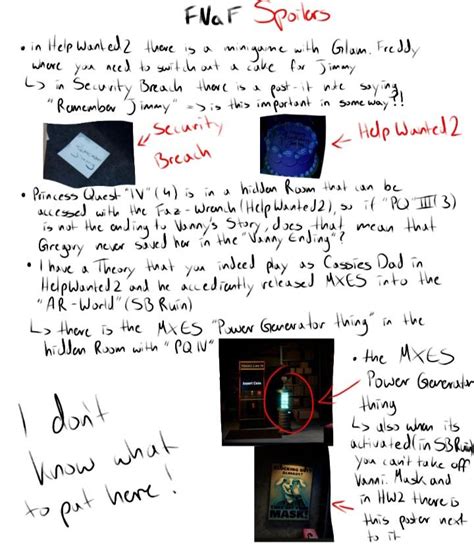 FNaF Spoilers
• in Help Wanted 2 there is a minigame with Glam. Freddy
where you need to switch out a cake for Jimmy
↳ in Security Breach there is a post-it note saying
"Remember Jimmy" => is this important in some way?!
Security
Breach
Help Wanted 2
• Princess Quest "IV" (4) is in a hidden Room that can be
accessed with the Faz-Wrench (Help Wanted 2), so if "PQ III" (3)
is not the ending to Vanny's Story, does that mean that
Gregory never saved her in the "Vanny Ending"?
• I have a Theory that you indeed play as Cassies Dad in
Help Wanted 2 and he accediently released MXES into the
"AR-World" (SB Ruin)
↳ there is the MXES "Power Generator thing" in the
hidden Room with "PQ IV"
Insert Coin
• the MXES
Power Generator
thing
↳ also when its
activated (in SB Ruin)
you can't take off
Vanni. Mask and
in HW2 there is
this poster next
to it
MASK!
I don't
know what
to put here!